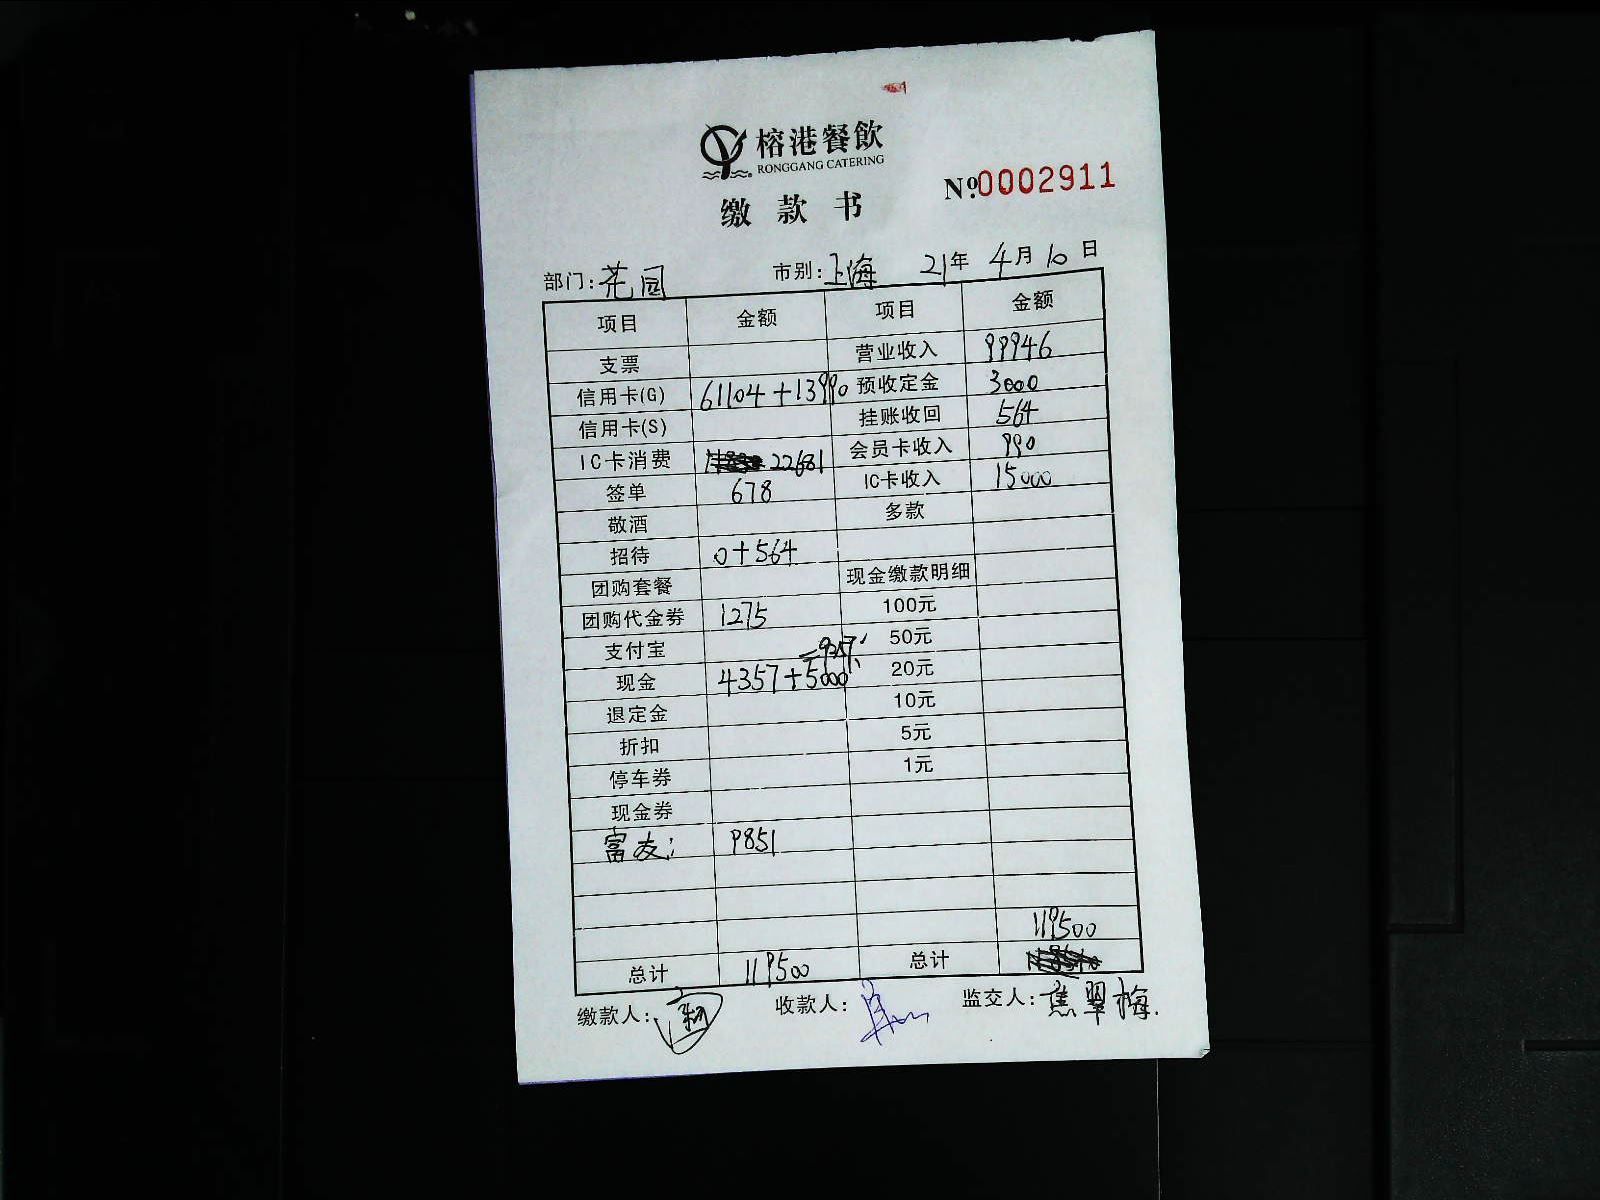 榕港餐飲
RONGGANG CATERING
№0002911
缴款书
部门:花园 市别:上海 21年4月10日
项目 金额 项目 金额
支票 营业收入 99946
信用卡(G) 61104+13990 预收定金 3000
信用卡(S) 挂账收回 564
IC卡消费 22681 会员卡收入 990
签单 678 IC卡收入 15000
敬酒 多款
招待 0+564
团购套餐 现金缴款明细
团购代金券 1275 100元
支付宝 50元
=9357
现金 4357+5000 20元
退定金 10元
折扣 5元
停车券 1元
现金券
富友: 9851
119500
总计 119500 总计
缴款人: 收款人: 监交人:焦翠梅.